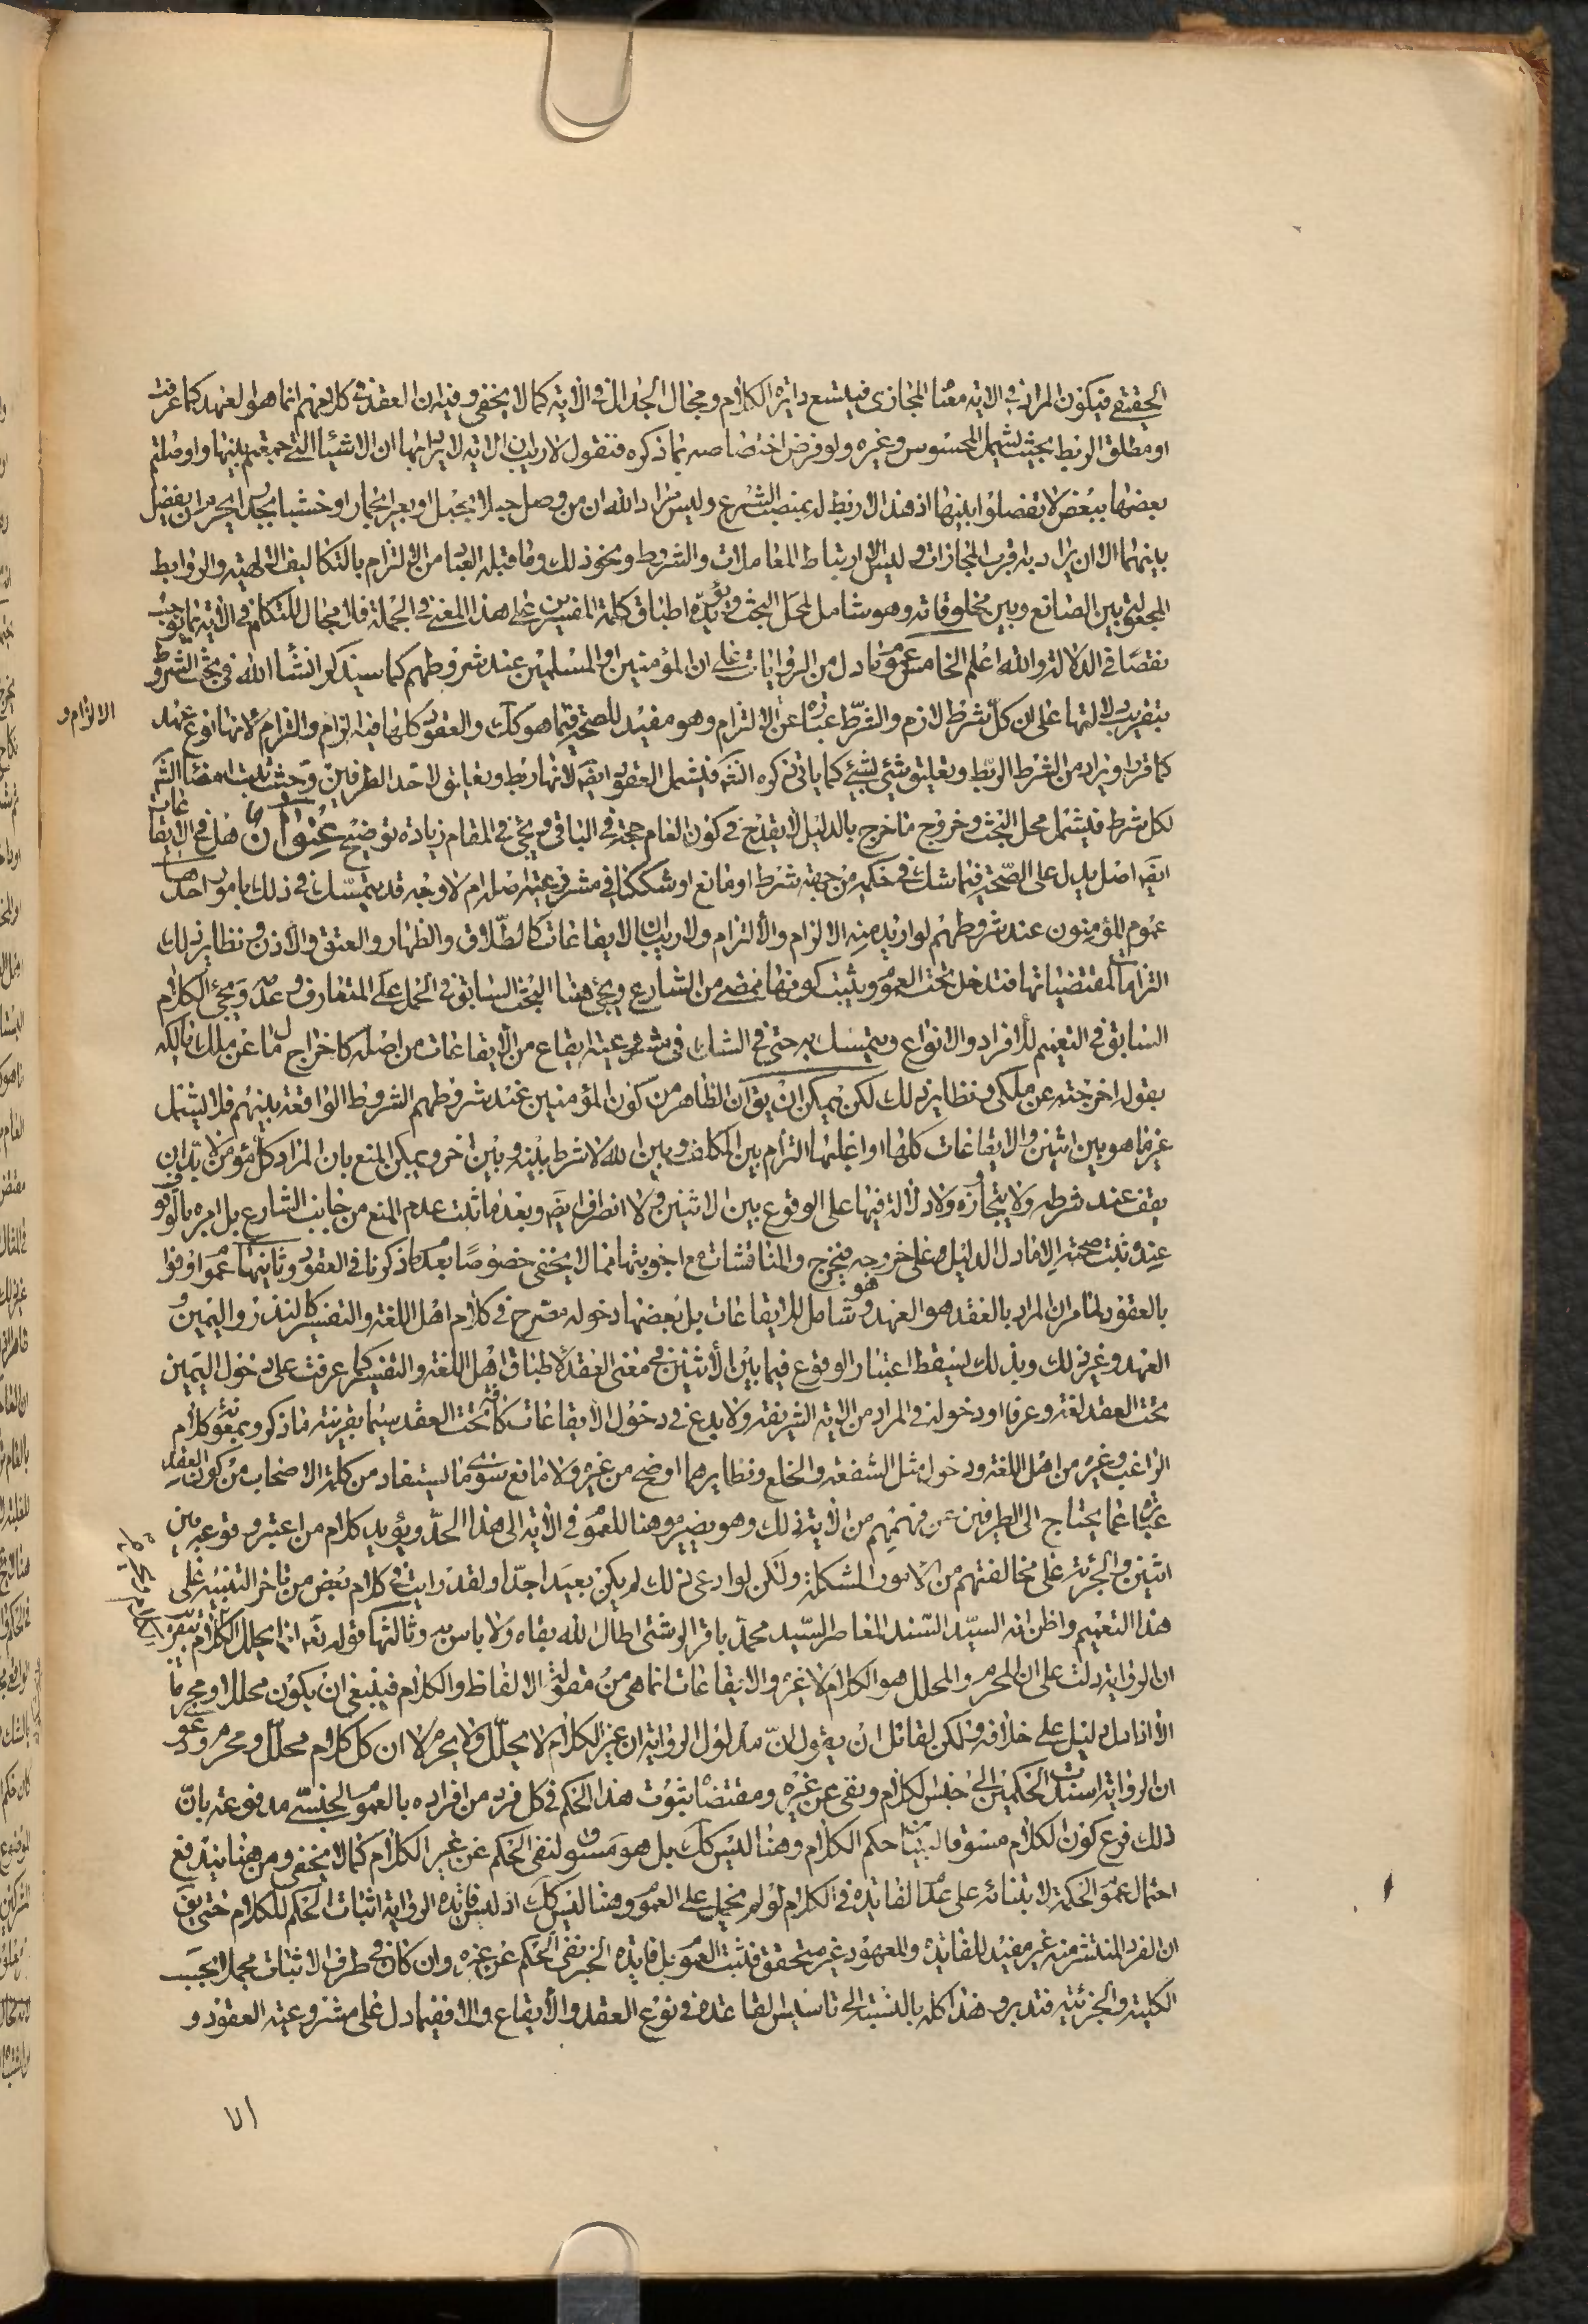 الحقيقي فيكون المراد في الاية معناه المجازى فيتسع دايرة الكلام ومجال الجدال في الاية كما لا يخفى وفيه ان العقد في كلامهم انما هو العهد كما عرفت
او مطلق الربط بحيث يشمل المحسوس وغيره ولو فرض اختصاصه بما ذكروه فنقول لا ريب ان الاية لا يراد بها ان الاشياء التي جمعتم بينها واوصلتم
بعضها ببعض لا تفصلوا بينها اذ هذا لا ربط له بمنصب الشرع وليس مراد الله ان من وصل حبلا بحبل او بعيرا بحمار او خشبا بجدار يحرم ان يفصل
بينهما الا ان يراد به اقرب المجازات وليس الا ارتباط المعاملات والشروط ونحو ذلك وما قبله العباد من الالتزام بالتكاليف الالهية والروابط
المجعولة بين الصانع وبين مخلوقاته وهو شامل لمحل البحث ويؤيده اطباق كلمة المفسرين على هذا المعنى في الجملة فلا مجال للتكلم في الاية بما يوجب
نقصا في الدلالة والله اعلم الخامس عموم ما دل من الروايات على ان المؤمنين او المسلمين عند شروطهم كما سيذكر انشاء الله في بحث الشروط
بتقريب دلالتها على ان كل شرط لازم والشرط عبارة عن الالتزام وهو مفيد للصحة فيما هو كك والعقود كلها فيه الزام والتزام لانها نوع عهد
الالزام و
كما قرر او يراد من الشرط الربط وتعليق شيء بشيء كما ياتي ذكره انشه فيشمل العقود ايضَ لانها ربط وتعليق لاحد الطرفين وحيث ثبت امضاء الشرع
لكل شرط فيشمل محل البحث وخروج ما خرج بالدليل لا يقدح في كون العام حجة في الباقي ويجئ في المقام زيادة توضيح عنوان هل في الايقاعات
ايضَ اصل يدل على الصحة فيما شك في حكمه من جهة شرط او مانع او شككنا في مشروعيته اصلا ام لا وجه قد يتمسك في ذلك بامور احدها
عموم المؤمنون عند شروطهم لو اريد منه الالزام والالتزام ولا ريب ان الايقاعات كالطلاق والظهار والعتق والاذن ونظاير ذلك
التزامات لمقتضياتها فتدخل تحت العموم ويثبت كونها ممضى من الشارع ويجئ هنا البحث السابق في الحمل على المتعارف وعدمه ومجئ الكلام
السابق في التعميم للافراد والانواع ويتمسك به حتى في الشك في مشروعية ايقاع من الايقاعات من اصله كاخراج مال ما عن ملك مالكه
بقوله اخرجته عن ملكي ونظاير ذلك لكن يمكن ان يق ان الظاهر من كون المؤمنين عند شروطهم الشروط الواقعة بينهم فلا يشتمل
غير ما هو بين اثنين والايقاعات كلها او اغلبها التزام بين المكلف وبين الله لا شرط بينه وبين اخر ويمكن المنع بان المراد كل مؤمن لا بد ان
يقف عند شرطه ولا يتجاوزه ولا دلالة فيها على الوقوع بين الاثنين ولا انصراف ايضَ وبعد ما ثبت عدم المنع من جانب الشارع بل امره بالوقوف
عنده ثبت صحته الا ما دل الدليل على خروجه فيخرج والمناقشات مع اجوبتها مما لا يخفى خصوصا بعد ما ذكرنا في العقود وثانيها عموم اوفوا
بالعقود لما مر ان المراد بالعقد هو العهد وهو شامل للايقاعات بل بعضها دخوله مصرح في كلام اهل اللغة والتفسير كالنذر واليمين و
العهد وغير ذلك وبذلك يسقط اعتبار الوقوع فيما بين الاثنين في معنى العقد لاطباق اهل اللغة والتفسير كما عرفت على دخول اليمين
تحت العقد لغة وعرفا او دخوله في المراد من الاية الشريفة ولا بدع في دخول الايقاعات كافة تحت العقد سيما بقرينة ما ذكر وبمعونة كلام
الراغب وغيره من اهل اللغة ودخول مثل الشفعة والخلع ونظايرهما اوضح من غيره ولا مانع سوى ما يستفاد من كلمة الاصحاب من كون العقد
عبارة عما يحتاج الى الطرفين عن فهمهم من الاية ذلك وهو يضير موهنا للعموم في الاية الى هذا الحد ويؤيد كلام من اعتبر وقوعه بين
اثنين والجرئة على مخالفتهم من الامور المشكلة ولكن لو ادعى ذلك لم يكن بعيدا جدا ولقد رايت في كلام بعض من تاخر التنبيه على
هذا التعميم واظن انه السيد السند المعاصر السيد محمد باقر الرشتي اطال الله بقاه ولا باس به وثالثها قوله ع انما يحلل الكلام بتقريب
ان الرواية دلت على ان المحرم والمحلل هو الكلام لا غير والايقاعات انما هي من مقولة الالفاظ والكلام فينبغي ان يكون محللا ومحرما
الا اذا دل دليل على خلافه ولكن لقائل ان يقول ان مدلول الرواية ان غير الكلام لا يحلل ولا يحرم لا ان كل كلام محلل ومحرم ودعوى
ان الرواية اسندت الحكمين الى جنس الكلام ونفى عن غيره ومقتضاه ثبوت هذا الحكم في كل فرد من افراده بالعموم الجنسي مدفوعة بان
ذلك فرع كون الكلام مسوقا لبيان حكم الكلام وهنا ليس كك بل هو مسوق لنفى الحكم عن غير الكلام كما لا يخفى ومن هنا يندفع
احتمال عموم الحكمة لابتنائه على عدم الفايدة في الكلام لو لم يحمل على العموم وهنا ليس كك اذ ليس فايدة الرواية اثبات الحكم للكلام حتى يق
ان الفرد المنتشر منه غير مفيد للفايدة والمعهود غير متحقق فثبت العموم بل فايدة الخبر نفى الحكم عن غيره وان كان في طرف الاثبات مجملا بحسب
الكلية والجزئية فتدبر وهذا كله بالنسبة الى تاسيس القاعدة في نوع العقد والايقاع والا ففيما دل على مشروعية العقود و